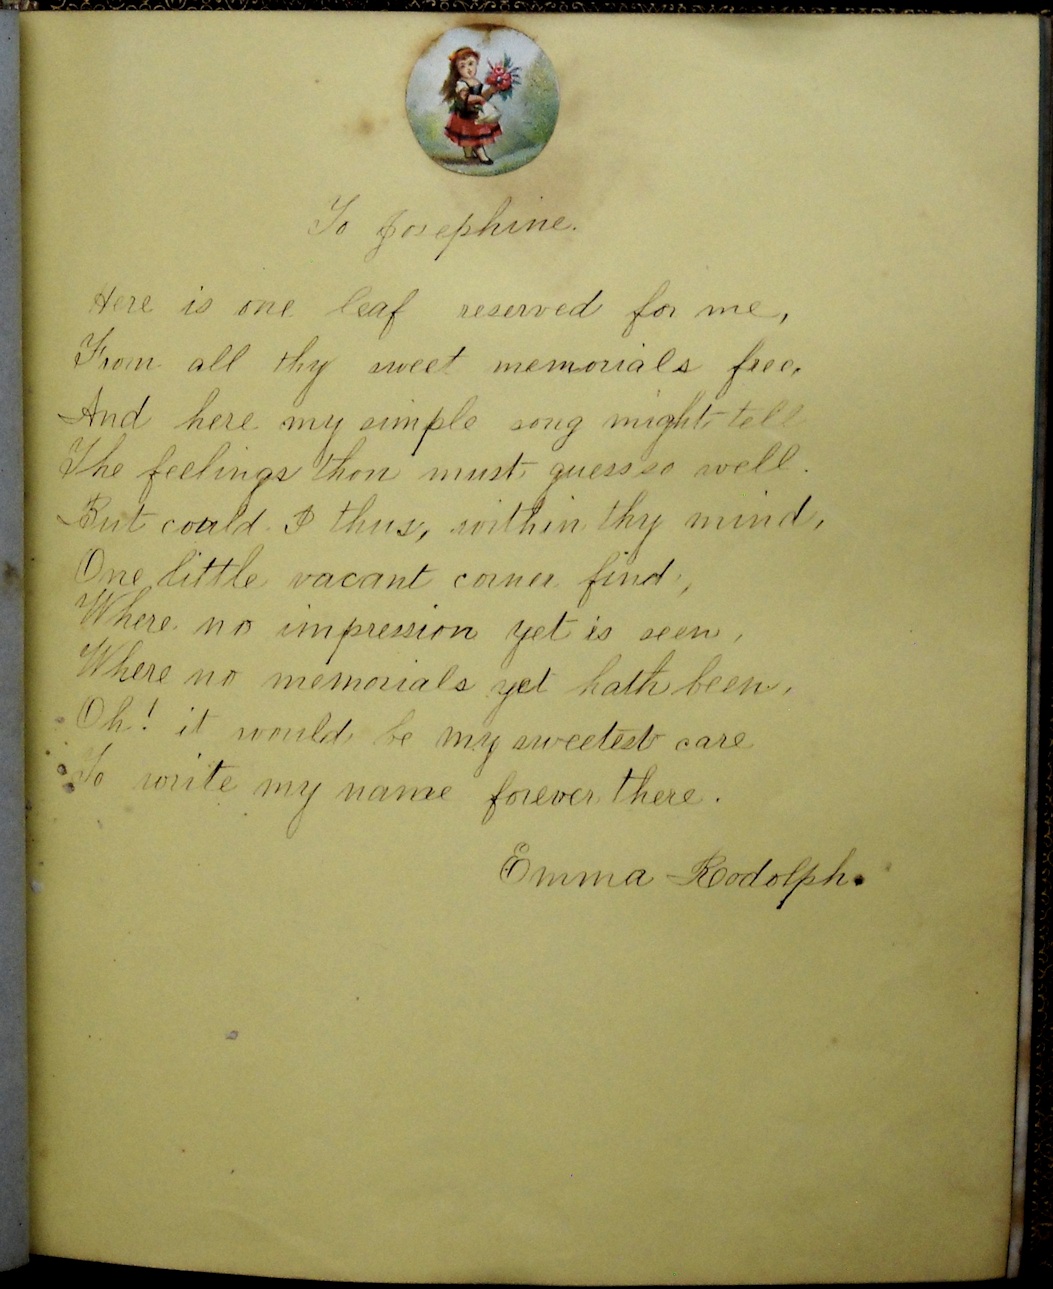 To Josephine.
Here is one leaf reserved for me,
From all thy sweet memorials free,
And here my simple song might tell
The feelings thou must guess so well.
But could I thus, within thy mind,
One little vacant corner find,
Where no impression yet is seen,
Where no memorials yet hath been,
Oh! it would be my sweetest care
To write my name forever there.
Emma Rodolph.